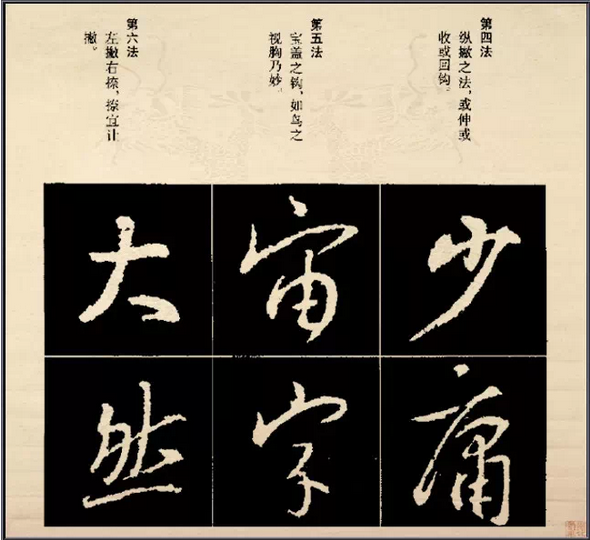 第四法
纵撇之法，或伸或
收或回钩。
第五法
宝盖之钩，如鸟之
视胸乃妙。
第六法
左撇右捺，捺宜计
撇。
少
庸
宙
字
大
然